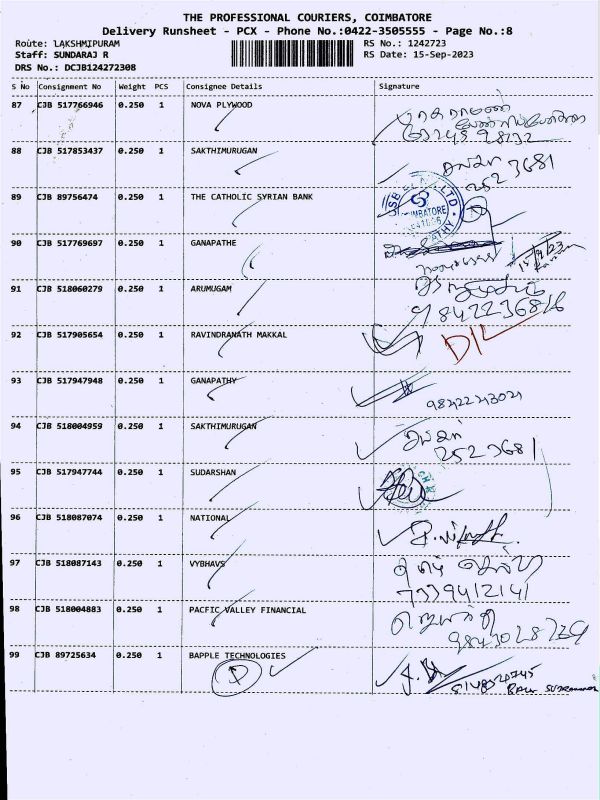 THE PROFESSIONAL COURIERS, COIMBATORE
Delivery Runsheet - PCX - Phone No.:0422-3505555 - Page No.:8
Route: LAKSHMIPURAM RS No.: 1242723
Staff: SUNDARAJ R RS Date: 15-Sep-2023
DRS No.: DCJB124272308
S No Consignment No Weight PCS Consignee Details Signature
87 CJB 517766946 0.250 1 NOVA PLYWOOD
88 CJB 517853437 0.250 1 SAKTHIMURUGAN
252 3681
89 CJB 89756474 0.250 1 THE CATHOLIC SYRIAN BANK
90 CJB 517769697 0.250 1 GANAPATHE
15/9/23
91 CJB 518060279 0.250 1 ARUMUGAM
92 CJB 517905654 0.250 1 RAVINDRANATH MAKKAL D/L
93 CJB 517947948 0.250 1 GANAPATHY
94 CJB 518004959 0.250 1 SAKTHIMURUGAN
2523681
95 CJB 517947744 0.250 1 SUDARSHAN
96 CJB 518087074 0.250 1 NATIONAL
97 CJB 518087143 0.250 1 VYBHAVS
7339412141
98 CJB 518004883 0.250 1 PACFIC VALLEY FINANCIAL
9843028739
99 CJB 89725634 0.250 1 BAPPLE TECHNOLOGIES
P